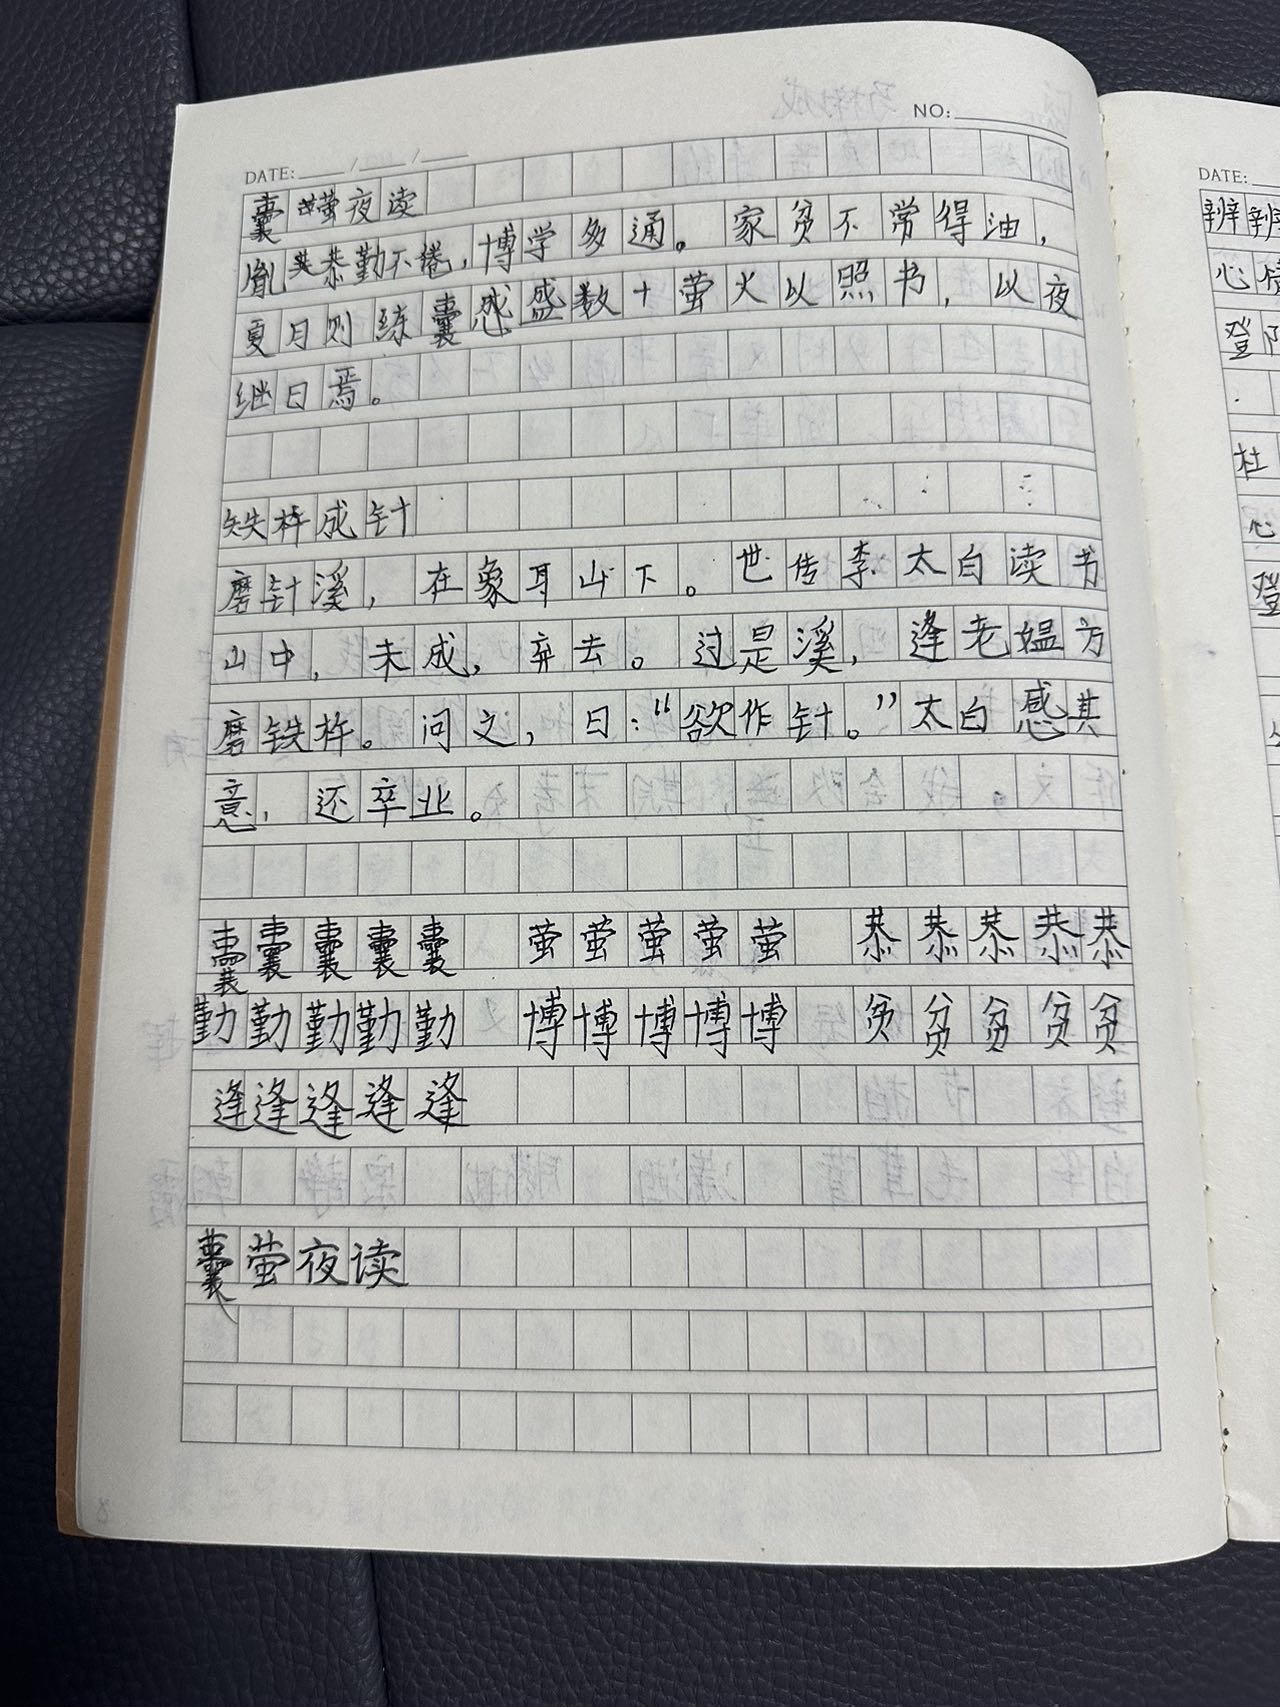 NO:
DATE: / /
囊萤夜读
胤恭勤不倦,博学多通。家贫不常得油,
夏月则练囊盛数十萤火以照书,以夜
继日焉。
铁杵成针
磨针溪,在象耳山下。世传李太白读书
山中,未成,弃去。过是溪,逢老媪方
磨铁杵。问之,曰:“欲作针。”太白感其
意,还卒业。
囊囊囊囊囊 萤萤萤萤萤 恭恭恭恭恭
勤勤勤勤勤 博博博博博 贫贫贫贫贫
逢逢逢逢逢
囊萤夜读
8
DATE:
辨辨
心情
登
杜
心
登